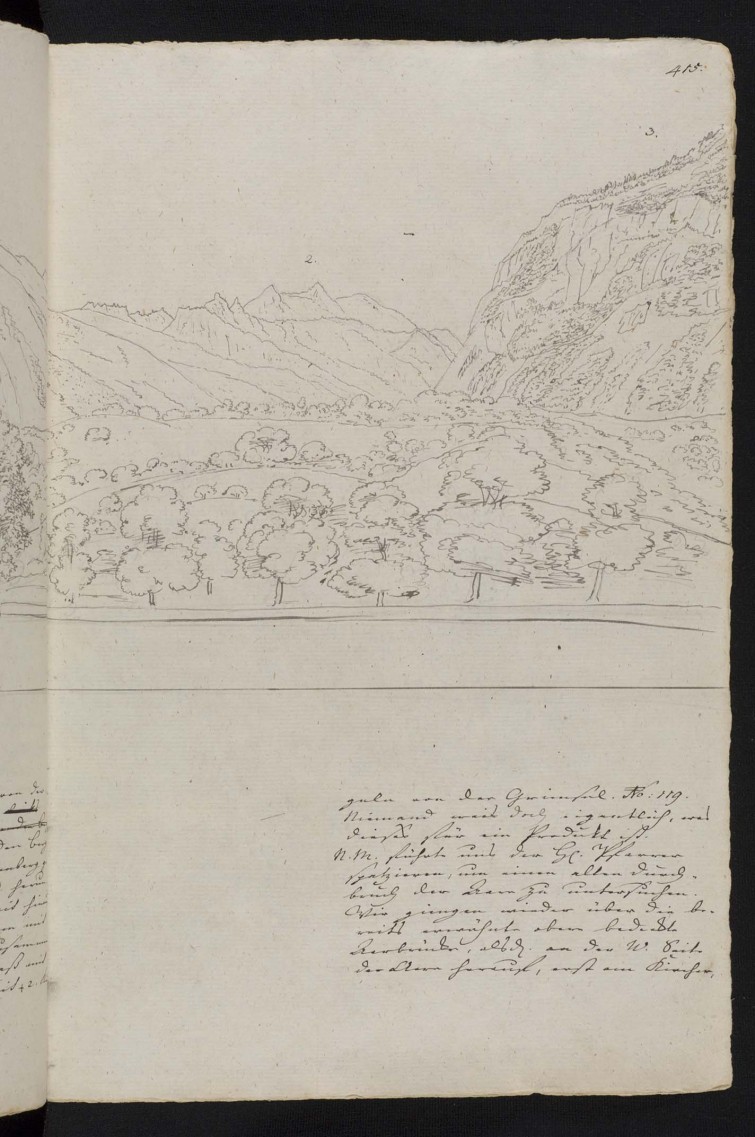 415.
3.
2.
geln von der Grimsel. No: 119.
Niemand weis doch eigentlich, was
dieses für ein Produkt ist.
N. M. führte uns der H. Pfarrer
spatzieren, um einen alten Durch-
bruch der Aare zu untersuchen.
Wir giengen wieder über die be-
reits erwähnte obere bedeckte
Aarbrücke, alsd. an der W. Seite
der Aare herauf, erst am Kircher,